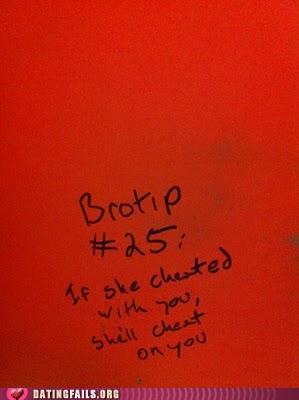 Brotip
#25:
If she cheated
with you,
she'll cheat
on you
DATINGFAILS.ORG